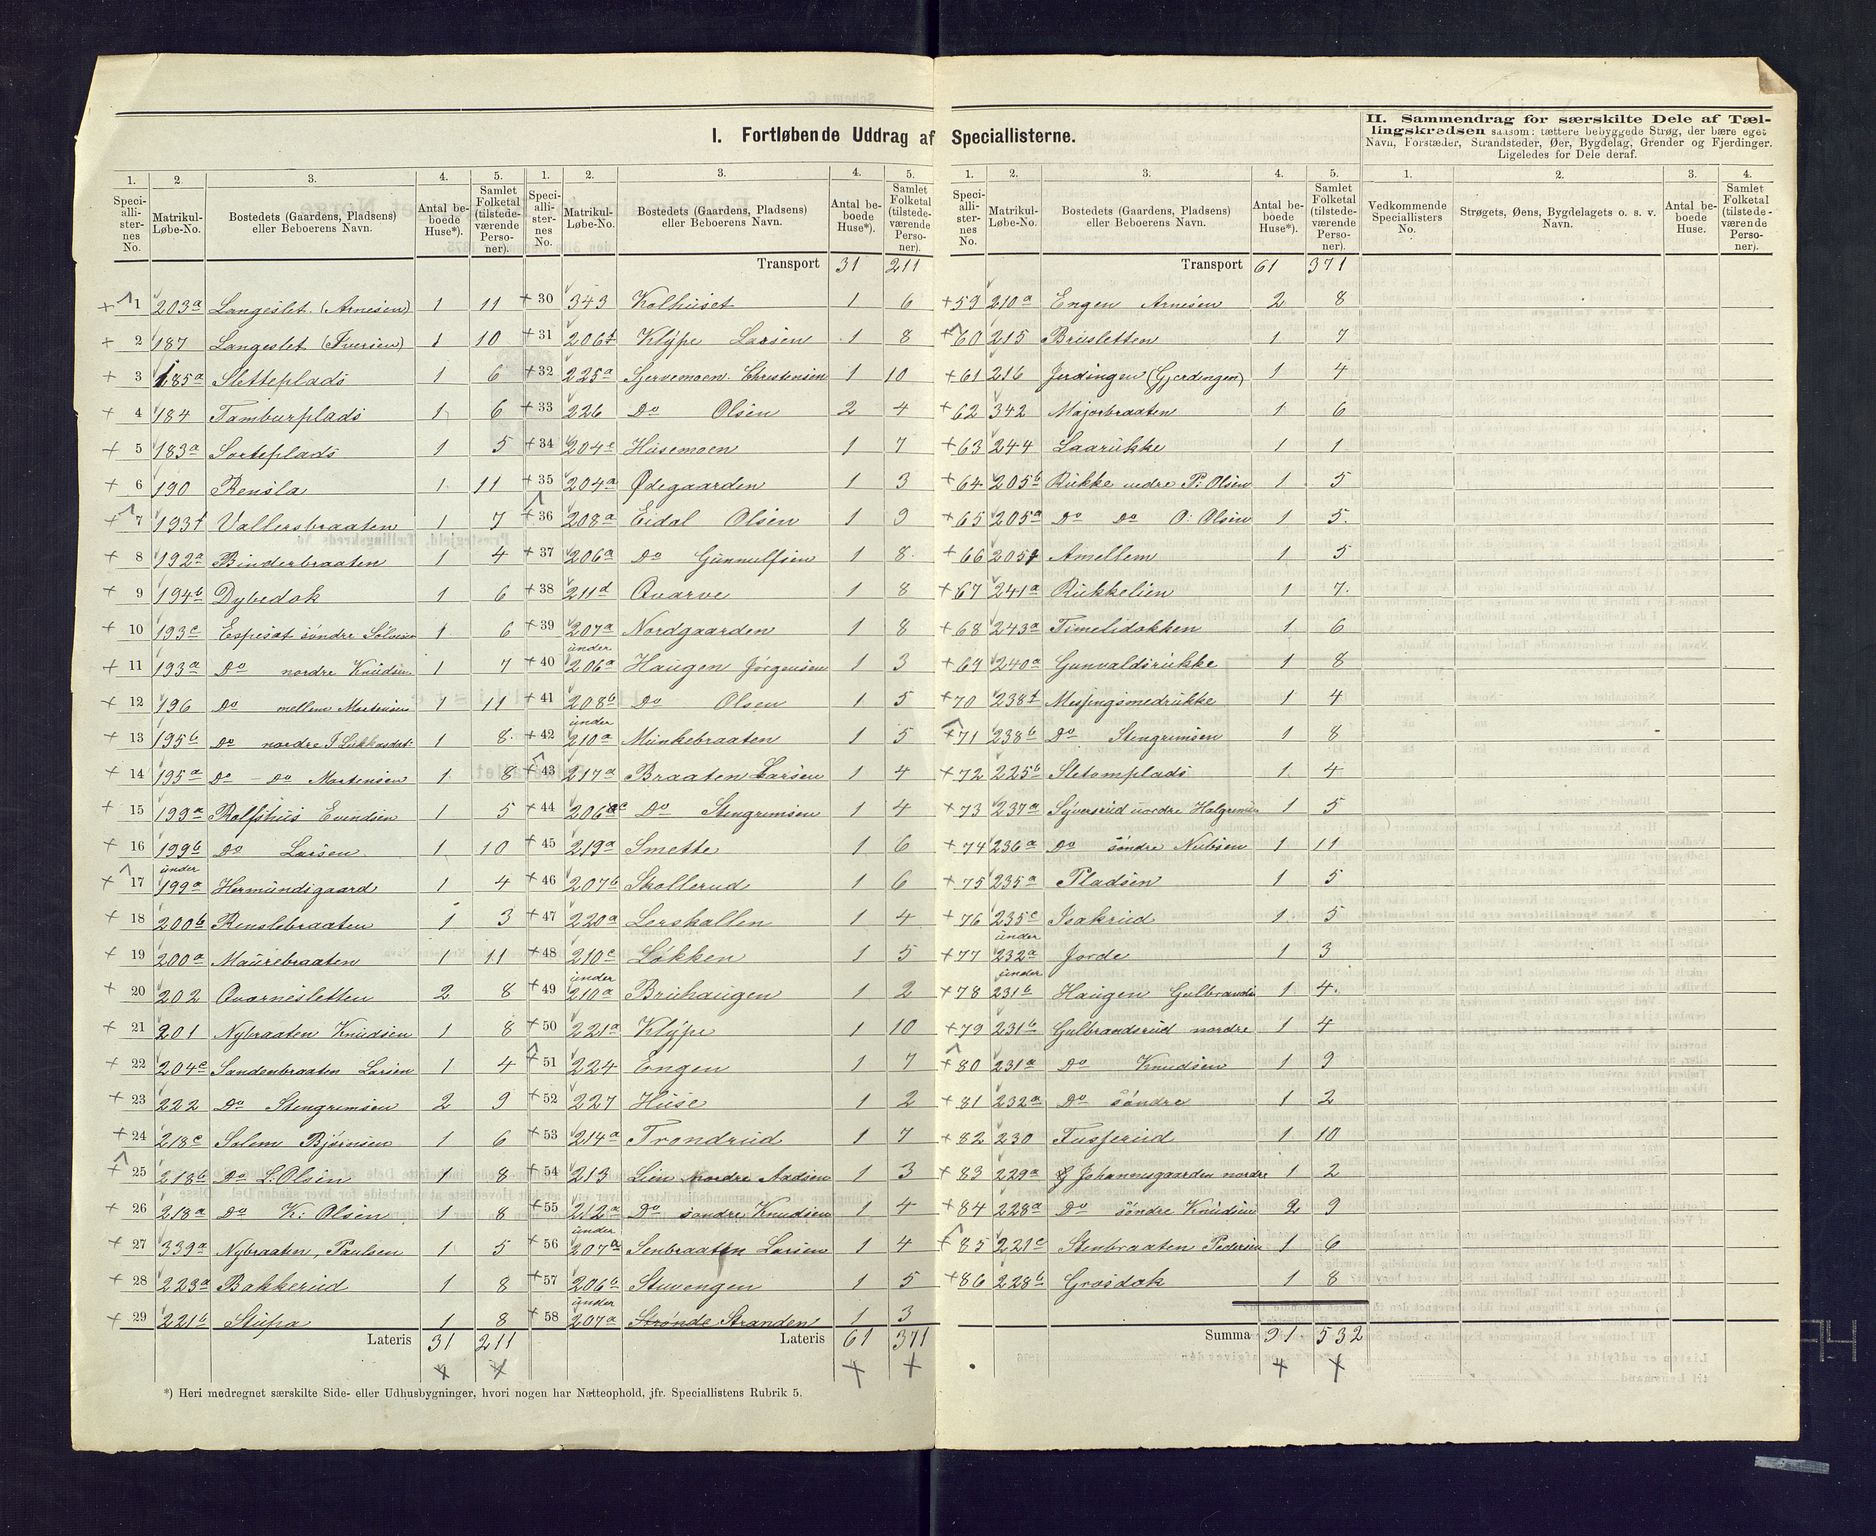 I. Fortløbende Uddrag af Speciallisterne.
II. Sammendrag for særskilte Dele af Tællingskredsen saasom: tættere bebyggede Strøg, der bære eget Navn, Forstæder, Strandsteder, Øer, Bygdelag, Grender og Fjerdinger. Ligeledes for Dele deraf.
1. 2. 3. 4. 5.
Speciallisternes No. Matrikul-Løbe-No. Bostedets (Gaardens, Pladsens) eller Beboerens Navn. Antal beboede Huse*). Samlet Folketal (tilstedeværende Personer).
+ 1 203a Langeslet (Arnesen) 1 11
+ 2 187 Langeslet (Iversen) 1 10
+ 3 185a Sletteplads 1 6
+ 4 184 Tamburplads 1 6
+ 5 183a Sorteplads 1 5
+ 6 190 Rensla 1 11
+ 7 193f Vallersbraaten 1 7
+ 8 192a Binderbraaten 1 4
+ 9 194b Dybedok 1 6
+ 10 193c Espeset søndre 1 6
+ 11 193a Do nordre Knudsen 1 7
+ 12 196 Do mellem Mortensen 1 11
+ 13 195b Do nordre 1 8
+ 14 195a Do - Do Mortensen 1 8
+ 15 199a Rolfshus Evendsen 1 5
+ 16 199b Do Larsen 1 10
+ 17 under 199a Hermundsgaard 1 4
+ 18 200b Renslebraaten 1 3
+ 19 200a Maurebraaten 1 11
+ 20 202 Qvarnesletten 2 8
+ 21 201 Nybraaten Knudsen 1 8
+ 22 204c Sandenbraaten Larsen 1 4
+ 23 222 Do Stengrimsen 2 9
+ 24 218c Solem Bjørnsen 1 6
+ 25 218b Do L. Olsen 1 8
+ 26 218a Do K: Olsen 1 8
+ 27 339a Nybraaten, Paulsen 1 5
+ 28 223a Bakkerud 1 8
+ 29 221b Stupa 1 8
Lateris 31 211
*) Heri medregnet særskilte Side- eller Udhusbygninger, hvori nogen har Natteophold, jfr. Speciallistens Rubrik 5.
1. 2. 3. 4. 5.
Speciallisternes No. Matrikul-Løbe-No. Bostedets (Gaardens, Pladsens) eller Beboerens Navn. Antal beboede Huse*). Samlet Folketal (tilstedeværende Personer).
Transport 31 211
+ 30 343 Kolhuset 1 6
+ 31 206f Klÿpe Larsen 1 8
+ 32 225a Sjervemoen Christensen 1 10
+ 33 226 Do Olsen 2 4
+ 34 204c Husemoen 1 7
+ 35 204a Ødegaarden 1 3
+ 36 208a Eidal Olsen 1 9
+ 37 206a Do Gunnulfsen 1 8
+ 38 211d Qvarve 1 8
+ 39 207a Nordgaarden 1 8
+ 40 under 206a Haugen Jørgensen 1 3
+ 41 208b Do Olsen 1 5
+ 42 under 210a Munkebraaten 1 5
+ 43 217a Braaten Larsen 1 4
+ 44 206c Do Stengrimsen 1 4
+ 45 219a Smette 1 6
+ 46 207b Skollerud 1 6
+ 47 220a Lerskallen 1 4
+ 48 210c Løkken 1 5
+ 49 under 210a Bruhaugen 1 2
+ 50 221a Klÿpe 1 10
+ 51 224 Engen 1 7
+ 52 227 Huse 1 2
+ 53 214a Trondrud 1 7
+ 54 213 Lien Nordre Aadsen 1 3
+ 55 212a Do søndre Knudsen 1 4
+ 56 under 207a Senbraaten Larsen 1 4
+ 57 206b Stuvengen 1 5
+ 58 under 207a Strønde Stranden 1 3
Lateris 61 371
1. 2. 3. 4. 5.
Speciallisternes No. Matrikul-Løbe-No. Bostedets (Gaardens, Pladsens) eller Beboerens Navn. Antal beboede Huse*). Samlet Folketal (tilstedeværende Personer).
Transport 61 371
+ 59 210a Engen Arnesen 2 8
+ 60 215 Brusletten 1 7
+ 61 216 Jerdingen (Gjerdingen) 1 4
+ 62 342 Majorbraaten 1 6
+ 63 244 Laarukke 1 1
+ 64 205b Rukke nedre P. Olsen 1 5
+ 65 205a Do Do O: Olsen 1 5.
+ 66 205f Amellem 1 5
+ 67 241a Rukkelien 1 7.
+ 68 243a Timelidokken 1 6
+ 69 240a Gunvaldsrukke 1 8
+ 70 238f Messingsmedrukke 1 4
+ 71 238b Do Stengrimsen 1 8
+ 72 225b Sletomplads 1 4
+ 73 237a Syversrud nordre Halgrimsen 1 5
+ 74 236a Do søndre Nubsen 1 11
+ 75 235a Pladsen 1 5
+ 76 235c Isakrud 1 5
+ 77 under 232a Jorde 1 3
+ 78 under 231b Haugen Gulbrands 1 4.
+ 79 231b Gulbrandsrud nordre 1 4
+ 80 231a Do Knudsen 1 9
+ 81 232a Do søndre 1 2
+ 82 230 Tusserud 1 10
+ 83 229a Johannesgaarden nordre 1 2
+ 84 228a Do søndre Knudsen 2 9
+ 85 221c Stenbraaten Pedersen 1 6
+ 86 228b Grosdok 1 8
Summa 91 532
1. 2. 3. 4.
Vedkommende Speciallisters No. Strøgets, Øens, Bygdelagets o. s. v. Navn. Antal beboede Huse. Samlet Folketal (tilstedeværende Personer).